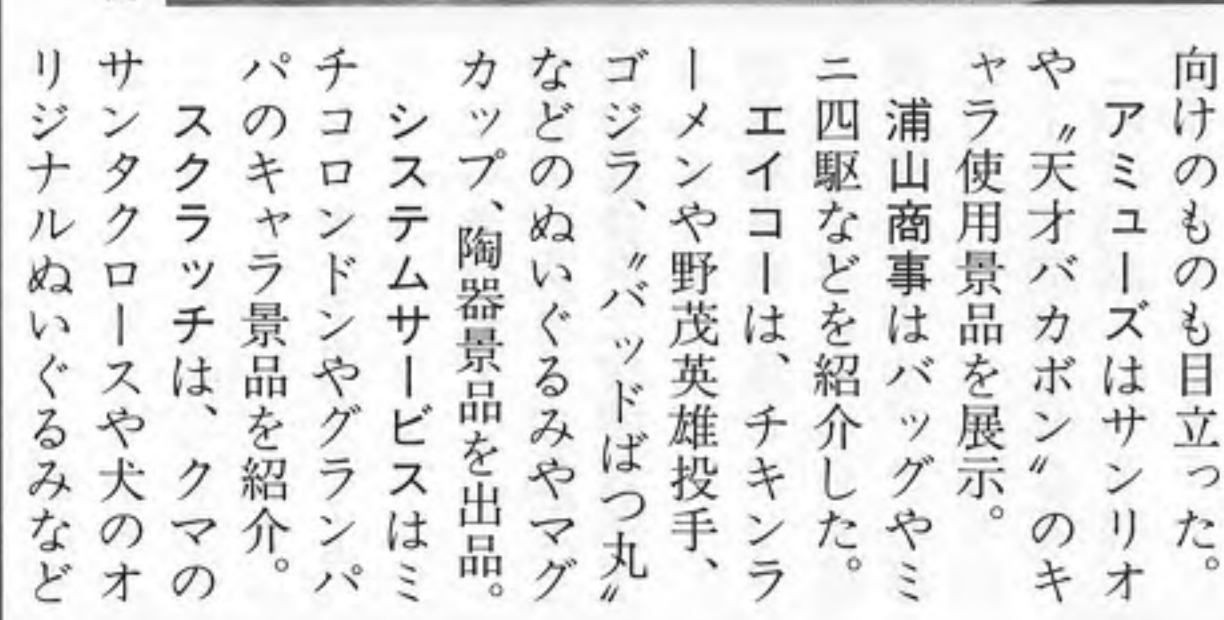 向けのものも目立った。
アミューズはサンリオ
や〝天才バカボン〟のキ
ャラ使用景品を展示。
浦山商事はバッグやミ
ニ四駆などを紹介した。
エイコーは、チキンラ
ーメンや野茂英雄投手、
ゴジラ、〝バッドばつ丸〟
などのぬいぐるみやマグ
カップ、陶器景品を出品。
システムサービスはミ
チコロンドンやグランパ
パのキャラ景品を紹介。
スクラッチは、クマの
サンタクロースや犬のオ
リジナルぬいぐるみなど